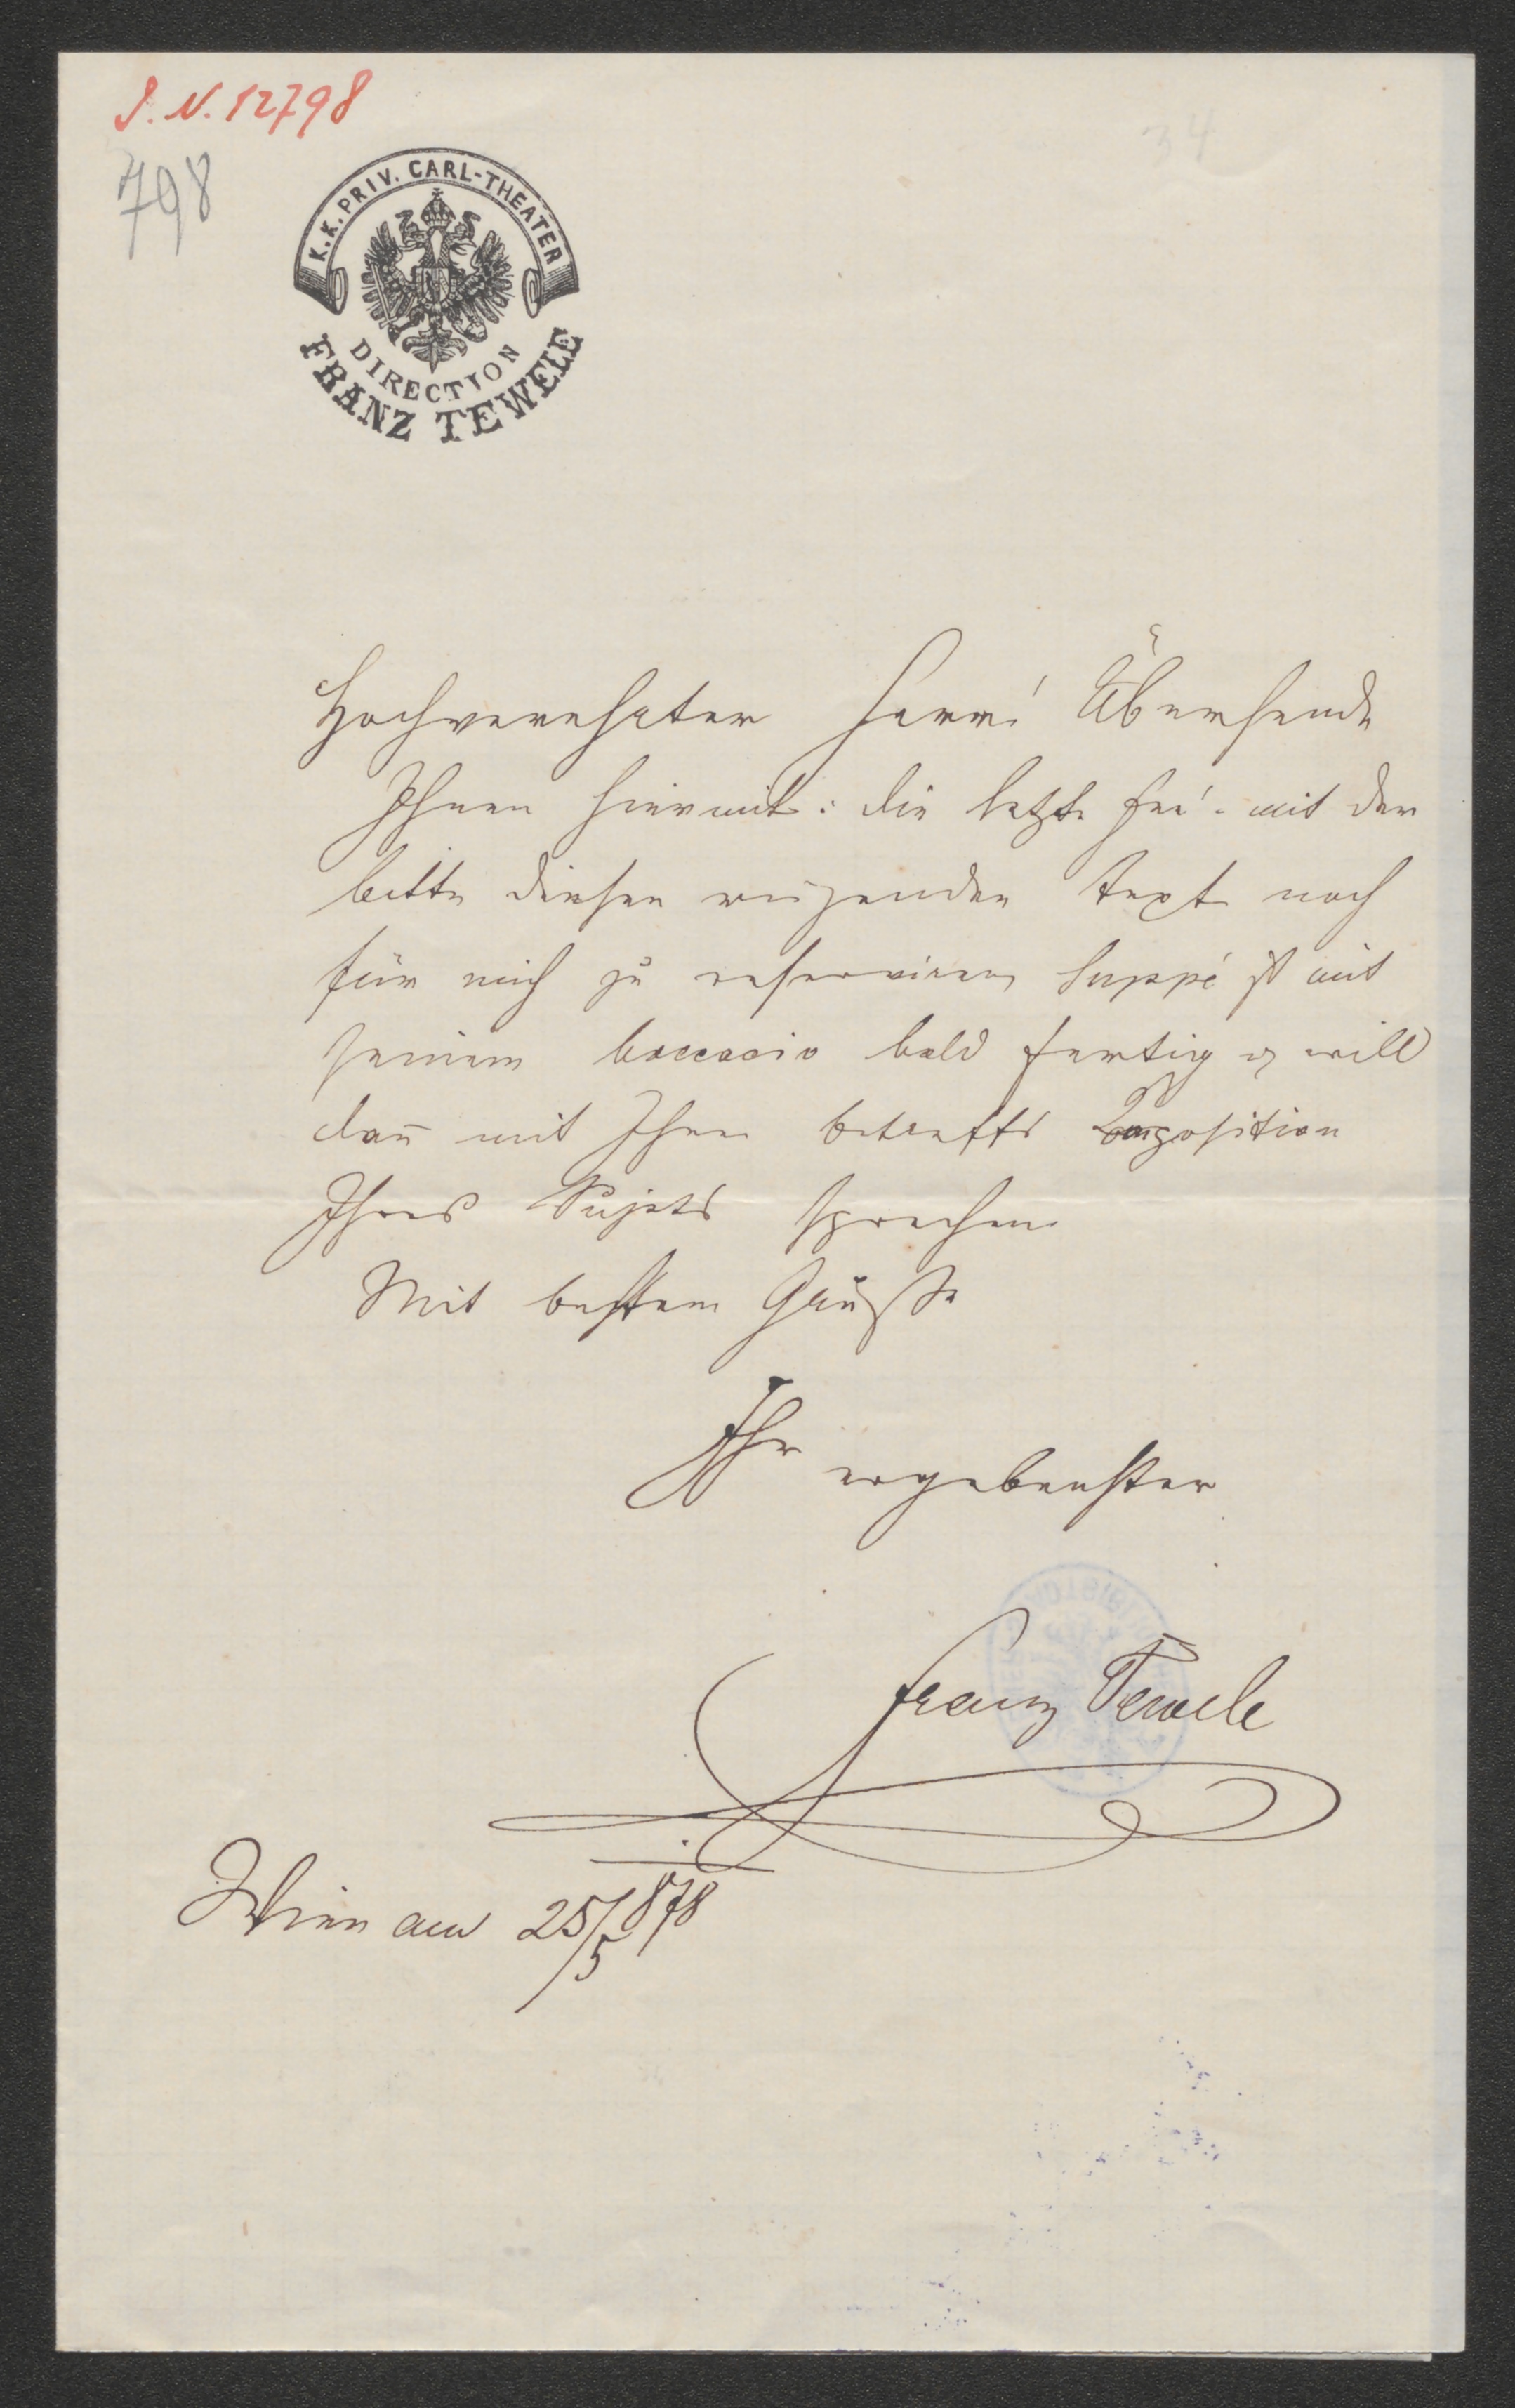 I.N. 12798
798
34
K.K. PRIV. CARL-THEATER
DIRECTION
FRANZ TEWELE
Hochverehrter Herr! Übersende
Ihnen hiermit: die letzte Fee! - mit der
bitte diesen reizenden Text noch
für mich zu reserviren, Suppé ist mit
seinem Boccacio bald fertig & will
dan̄ mit Ihnen betreffs Composition
Ihres Sujets sprechen.
Mit bestem Gruße
Ihr ergebenster
Franz Tewele
Wien am 25/5 878